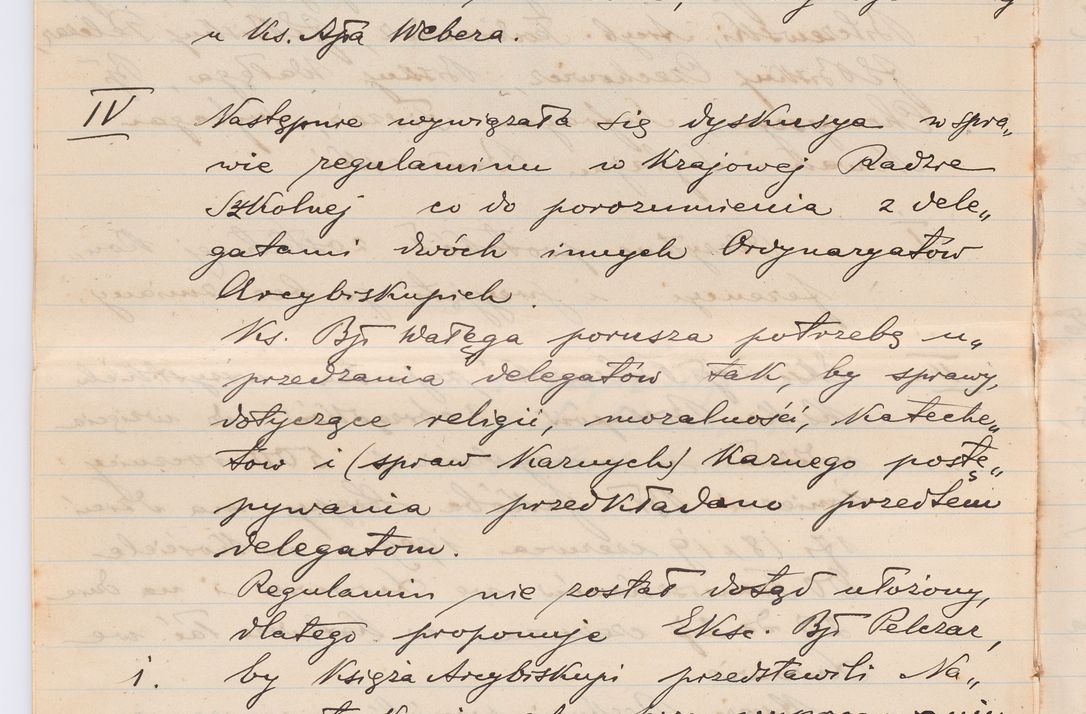 u Ks. Ajŏa Webera.
IV Następnie wywiązała się dyskusya w spra„
wie regulaminu w Krajowej Radzie
Szkolnej co do porozumienia z dele„
gatami dwóch innych Ordynaryatów
Arcybiskupich.
Ks. Bp Wałęga porusza potrzebę u„
przedzania delegatów tak, by sprawy,
dotyczące religii, moralności, kateche„
tów i (spraw karnych) karnego postę„
pywania przedkładano przedtem
delegatom.
Regulamin nie został dotąd ułożony,
dlatego proponuje EKsc. Bp Pelczar,
1. by Księża Arcybiskupi przedstawili Na„